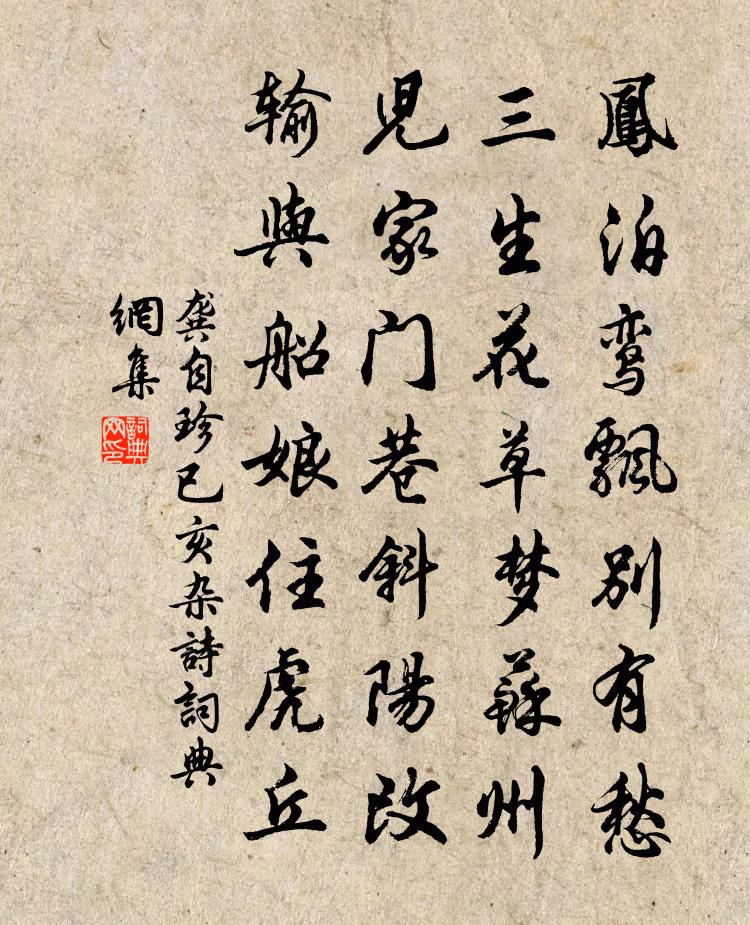 鳳泊鸾飄別有愁
三生花草梦蘇州
児家门巷斜陽改
输與船娘住虎丘
龚自珍己亥杂詩詞典
網集
詞典
网印